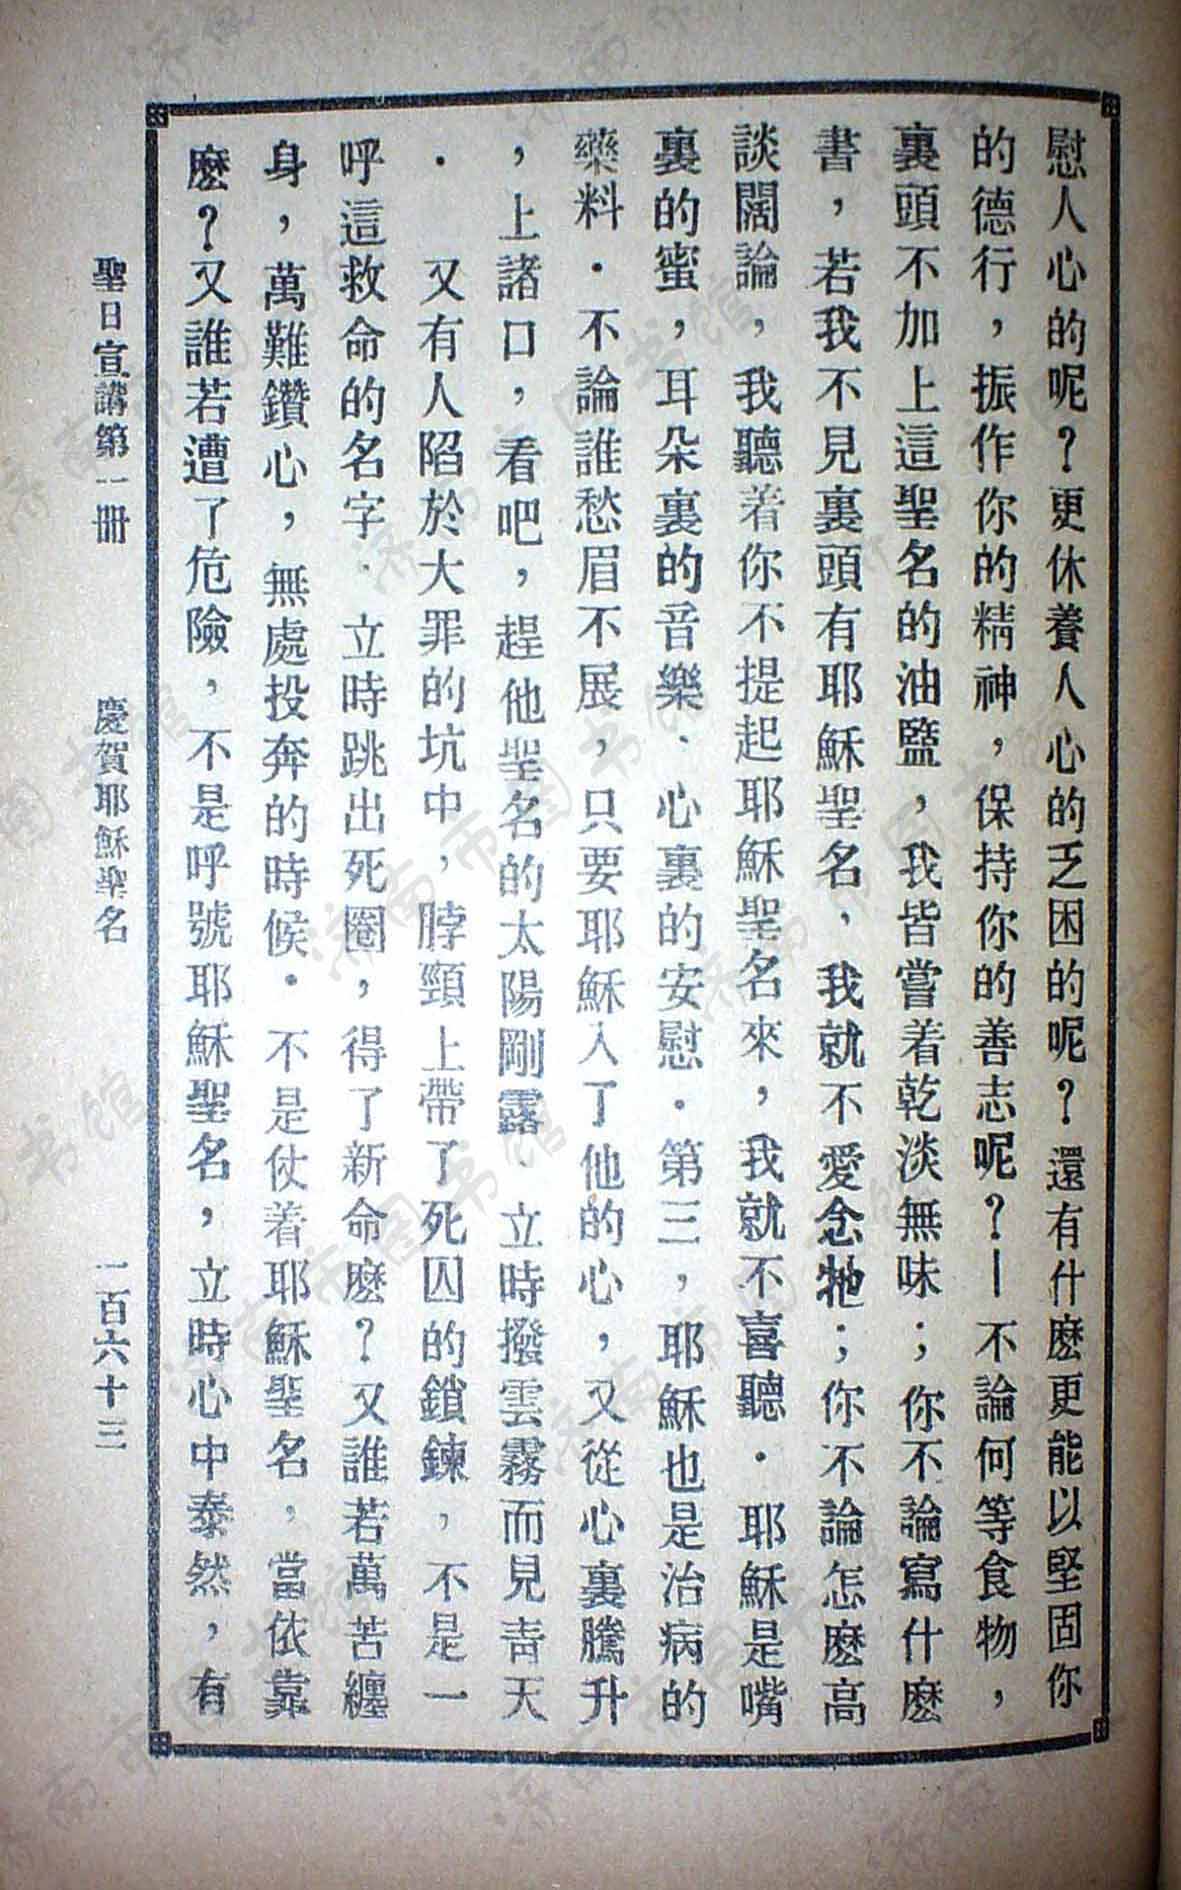 慰人心的呢？更休養人心的乏困的呢？還有什麽更能以堅固你
的德行，振作你的精神，保持你的善志呢？—不論何等食物，
裏頭不加上這聖名的油鹽，我皆嘗着乾淡無味；你不論寫什麽
書，若我不見裏頭有耶穌聖名，我就不愛念牠；你不論怎麽高
談闊論，我聽着你不提起耶穌聖名來，我就不喜聽．耶穌是嘴
裏的蜜，耳朵裏的音樂、心裏的安慰．第三，耶穌也是治病的
藥料．不論誰愁眉不展，只要耶穌入了他的心，又從心裏騰升
，上諸口，看吧，趕他聖名的太陽剛露、立時撥雲霧而見青天
．又有人陷於大罪的坑中，脖頸上帶了死囚的鎖鍊，不是一
呼這救命的名字．立時跳出死圈，得了新命麽？又誰若萬苦纏
身，萬難鑽心，無處投奔的時候．不是仗着耶穌聖名，當依靠
麽？又誰若遭了危險，不是呼號耶穌聖名，立時心中泰然，有
聖日宣講第一冊　慶賀耶穌聖名　一百六十三
济南市图书馆